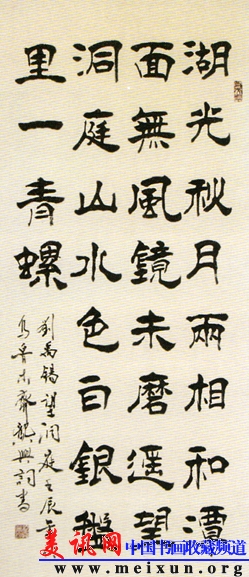 湖光秋月兩相和潭
面無風鏡未磨遥望
洞庭山水色白銀盤
里一青螺
劉禹錫望洞庭壬辰年
烏魯木齊
美讯网 中国书画收藏频道
www.meixun.org